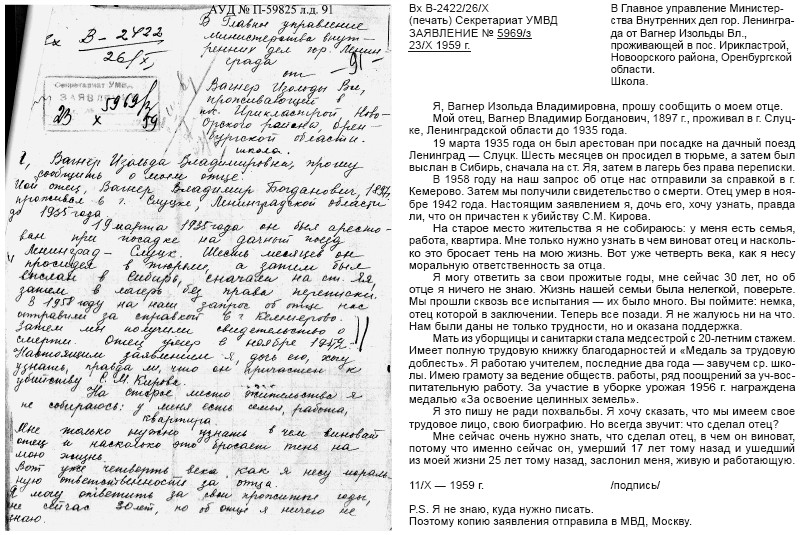 АУД № П-59825 л.д. 91
Вх В-2422
26/X
Секретариат УМВД
ЗАЯВЛЕНИЕ
5969/з
23 X 59
В Главное управление
министерства внут-
ренних дел гор. Ленин-
града
91
от
Вагнер Изольды Вл.,
проживающей в
пос. Ирикластрой Ново-
орского района, Орен-
бургской области.
школа.
Я, Вагнер Изольда Владимировна, прошу
сообщить о моем отце.
Мой отец, Вагнер Владимир Богданович, 1897,
проживал в г. Слуцке, Ленинградской области
до 1935 года.
19 марта 1935 года он был аресто-
ван при посадке на дачный поезд
Ленинград – Слуцк. Шесть месяцев он
просидел в тюрьме, а затем был
выслан в Сибирь, сначала на ст. Яя,
затем в лагерь без права переписки.
В 1958 году на наш запрос об отце нас
отправили за справкой в г. Кемерово.
Затем мы получили свидетельство о
смерти. Отец умер в ноябре 1942.
Настоящим заявлением я, дочь его, хочу
узнать, правда ли, что он причастен к
убийству С. М. Кирова.
На старое место жительства я
не собираюсь: у меня есть семья, работа,
квартира.
Мне только нужно узнать в чем виноват
отец и насколько это бросает тень на
мою жизнь.
Вот уже четверть века как я несу мораль-
ную ответственность за отца.
Я могу ответить за свои прожитые годы,
мне сейчас 30 лет, но об отце я ничего не
знаю.
Вх В-2422/26/X
(печать) Секретариат УМВД
ЗАЯВЛЕНИЕ № 5969/з
23/X 1959 г.
В Главное управление Министер-
ства Внутренних дел гор. Ленингра-
да от Вагнер Изольды Вл.,
проживающей в пос. Ирикластрой,
Новоорского района, Оренбургской
области.
Школа.
Я, Вагнер Изольда Владимировна, прошу сообщить о моем отце.
Мой отец, Вагнер Владимир Богданович, 1897 г., проживал в г. Слуц-
ке, Ленинградской области до 1935 года.
19 марта 1935 года он был арестован при посадке на дачный поезд
Ленинград — Слуцк. Шесть месяцев он просидел в тюрьме, а затем был
выслан в Сибирь, сначала на ст. Яя, затем в лагерь без права переписки.
В 1958 году на наш запрос об отце нас отправили за справкой в г.
Кемерово. Затем мы получили свидетельство о смерти. Отец умер в ноя-
бре 1942 года. Настоящим заявлением я, дочь его, хочу узнать, правда
ли, что он причастен к убийству С.М. Кирова.
На старое место жительства я не собираюсь: у меня есть семья,
работа, квартира. Мне только нужно узнать в чем виноват отец и насколь-
ко это бросает тень на мою жизнь. Вот уже четверть века, как я несу
моральную ответственность за отца.
Я могу ответить за свои прожитые годы, мне сейчас 30 лет, но об
отце я ничего не знаю. Жизнь нашей семьи была нелегкой, поверьте.
Мы прошли сквозь все испытания — их было много. Вы поймите: немка,
отец которой в заключении. Теперь все позади. Я не жалуюсь ни на что.
Нам были даны не только трудности, но и оказана поддержка.
Мать из уборщицы и санитарки стала медсестрой с 20-летним стажем.
Имеет полную трудовую книжку благодарностей и «Медаль за трудовую
доблесть». Я работаю учителем, последние два года — завучем ср. шко-
лы. Имею грамоту за ведение обществ. работы, ряд поощрений за уч-вос-
питательную работу. За участие в уборке урожая 1956 г. награждена
медалью «За освоение целинных земель».
Я это пишу не ради похвальбы. Я хочу сказать, что мы имеем свое
трудовое лицо, свою биографию. Но всегда звучит: что сделал отец?
Мне сейчас очень нужно знать, что сделал отец, в чем он виноват,
потому что именно сейчас он, умерший 17 лет тому назад и ушедший
из моей жизни 25 лет тому назад, заслонил меня, живую и работающую.
11/X — 1959 г. /подпись/
P.S. Я не знаю, куда нужно писать.
Поэтому копию заявления отправила в МВД, Москву.